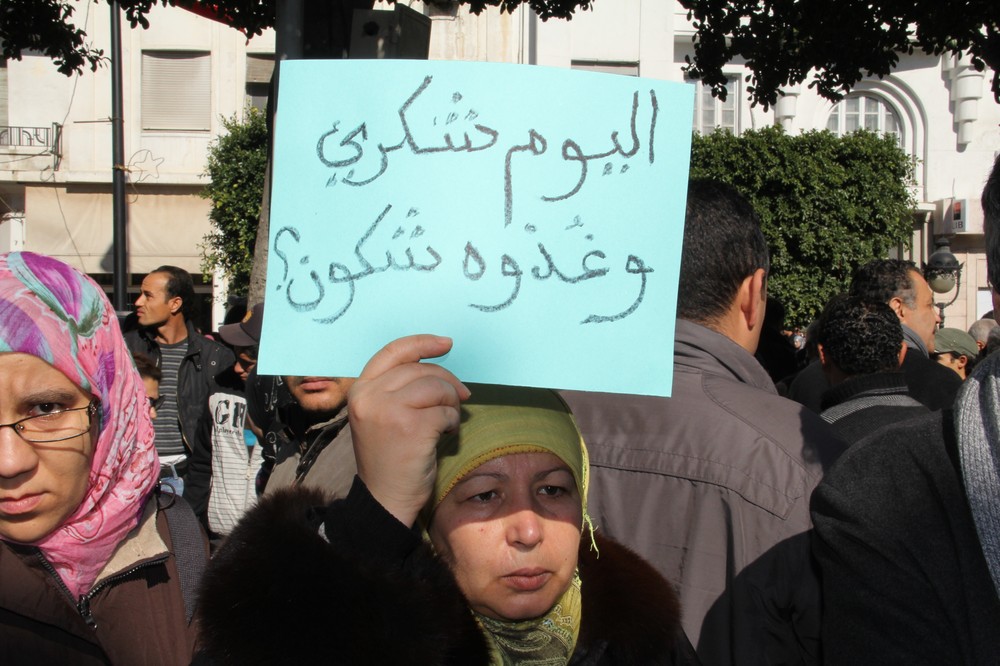 اليوم شكري
وغُذوه شكون؟